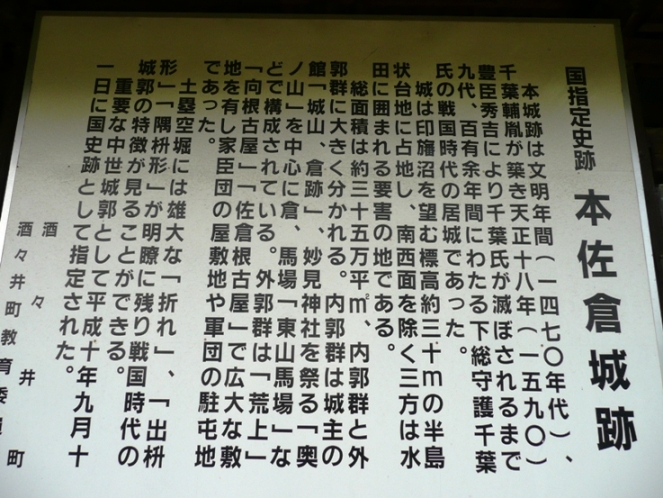 国指定史跡 本佐倉城跡
本城跡は文明年間(一四七〇年代)、
千葉輔胤が築き天正十八年(一五九〇)
豊臣秀吉により千葉氏が滅ぼされるまで
九代、百有余年間にわたる下総守護千葉
氏の戦国時代の居城であった。
城は印旛沼を望む標高約三十mの半島
状台地に占地し、南西面を除く三方は水
田に囲まれる要害の地である。
総面積は約三十五万平㎡、内郭群と外
郭群に大きく分かれる。内郭群は城主の
館「城山、倉跡」、妙見神社を祭る「奥
ノ山」を中心に倉、馬場「東山馬場」な
どで構成されている。外郭群は「荒上」
「向根古屋」「佐倉根古屋」で広大な敷
地を有し家臣団の屋敷地や軍団の駐屯地
であった。
土塁空堀には雄大な「折れ」、「出枡
形」「隅枡形」が明瞭に残り戦国時代の
城郭の特徴が見ることができる。
重要な中世城郭として平成十年九月十
一日に国史跡として指定された。
酒々井町
酒々井町教育委員